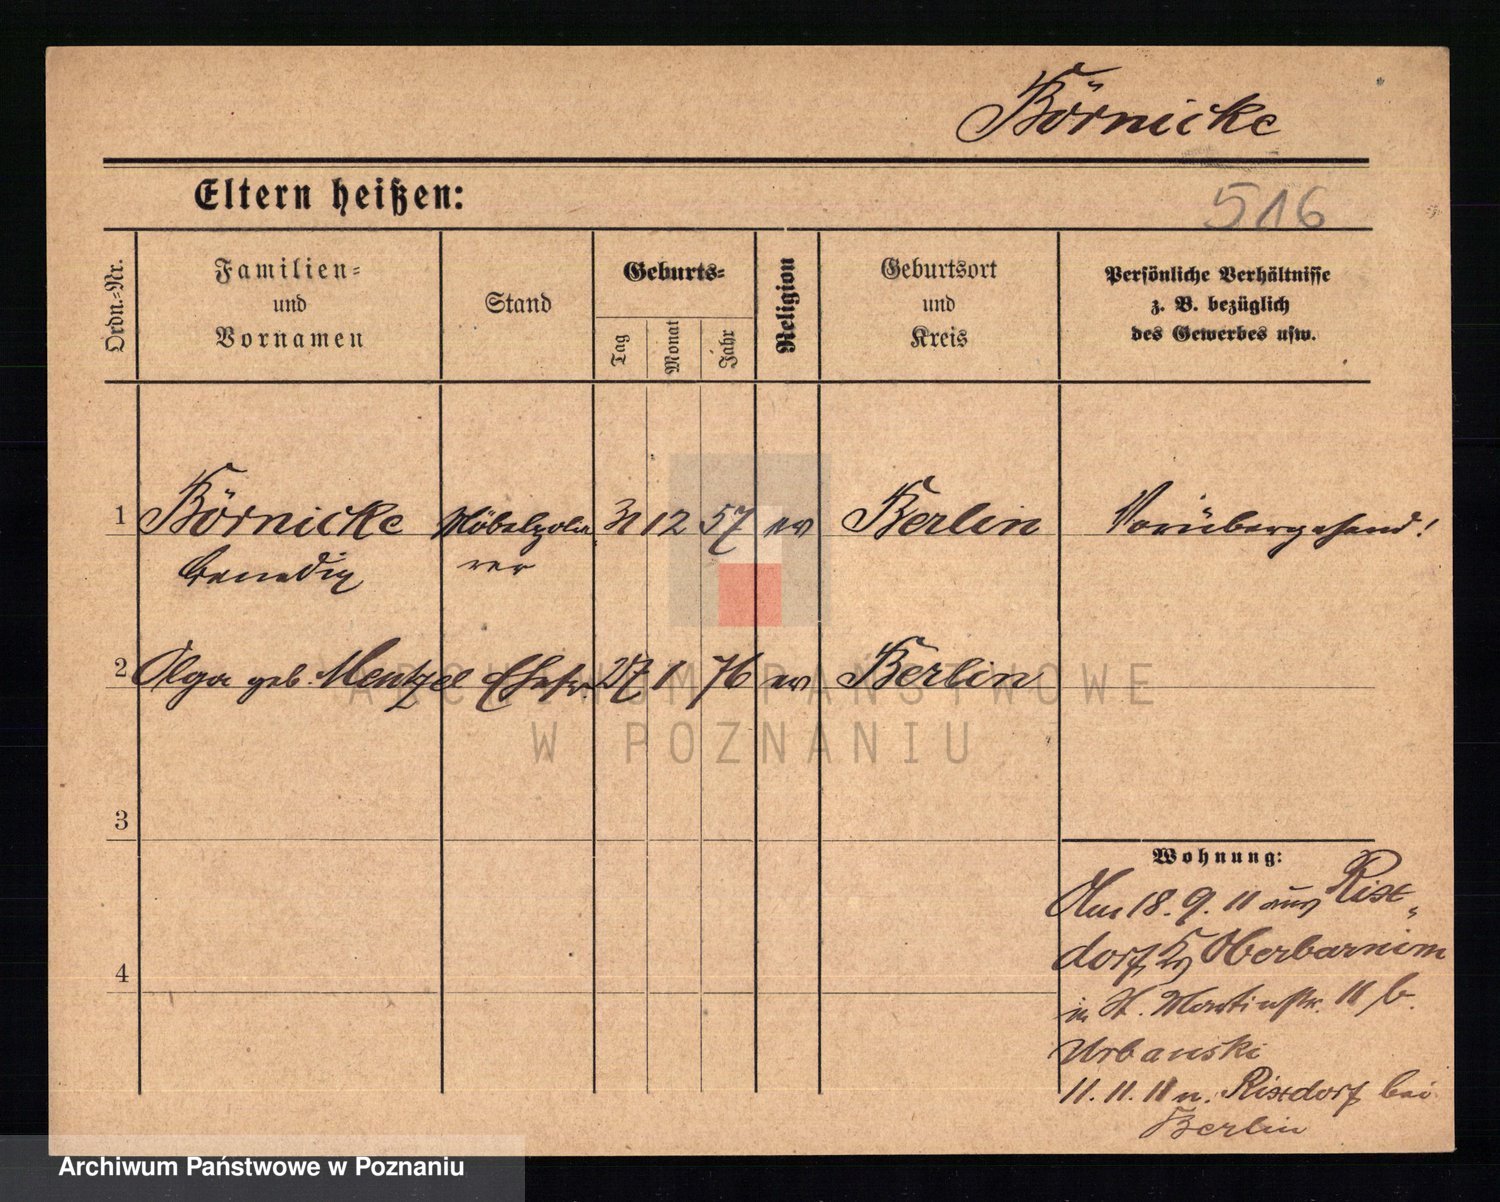 Börnicke
Eltern heißen:
516
Ordn.-Nr.
Familien-
und
Vornamen
Stand
Geburts-
Tag
Monat
Jahr
Religion
Geburtsort
und
Kreis
Persönliche Verhältnisse
z. B. bezüglich
des Gewerbes usw.
1 Börnicke Möbelpolie 31 12 57 ev Berlin Vorübergehend!
rer
2 Olga geb. Mentzel Ehefr. 27 1 76 ev Berlin
3
Wohnung:
Am 18. 9. 11 aus Rixt
dorf, Oberbarnim
4
in St. Martinstr. 11 b.
Urbanski
11. 11. 11 n. Rixdorf bei
Berlin
ARCHIWUM PAŃSTWOWE
W POZNANIU
Archiwum Państwowe w Poznaniu